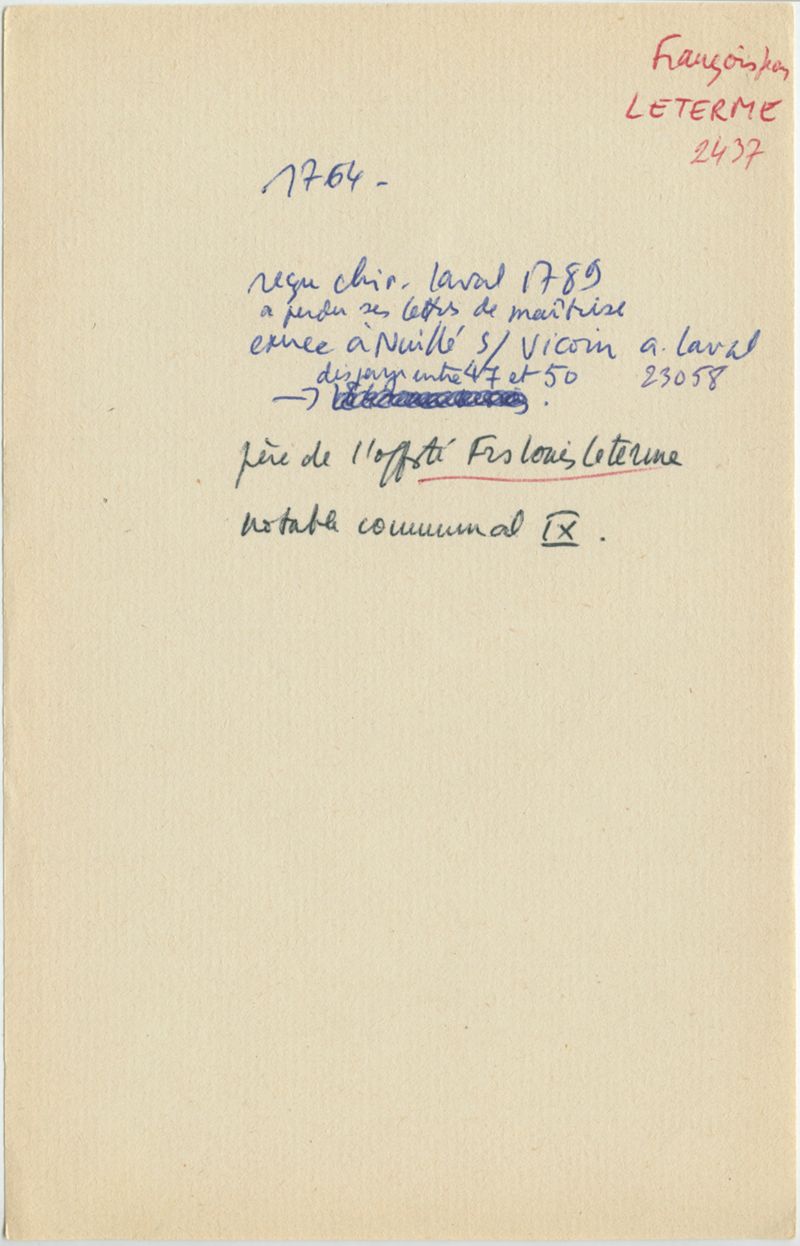 François Jean
LETERME
2437
1764 -
reçu chir. Laval 1789
a perdu ses lettres de maîtrise
exerce à Nuillé s/ Vicoin a. Laval
disparu entre 47 et 50 23058
→ .
père de l'offsté Frs Louis Leterme
notable communal IX .